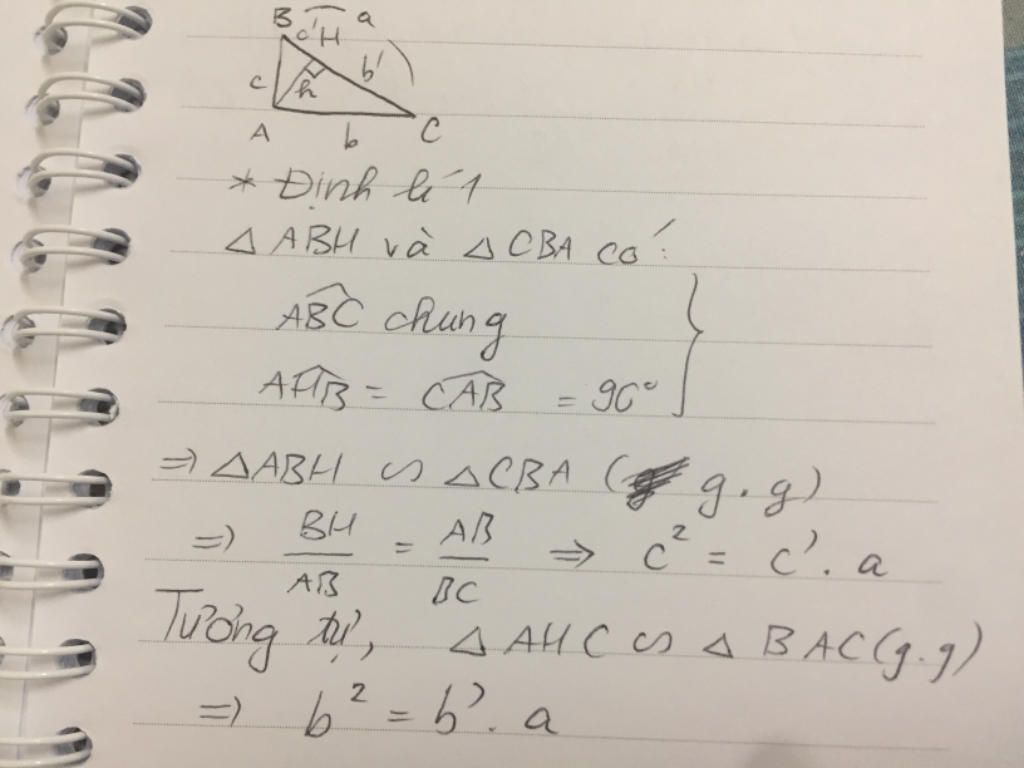 B a
c' H
b'
c h
A b C
* Định lí 1
△ ABH và △ CBA có:
ABC chung
AHB = CAB = 90°
=> △ABH ∽ △CBA (g.g)
=> BH/AB = AB/BC => c² = c'. a
Tương tự, △ AHC ∽ △ BAC (g.g)
=> b² = b'. a